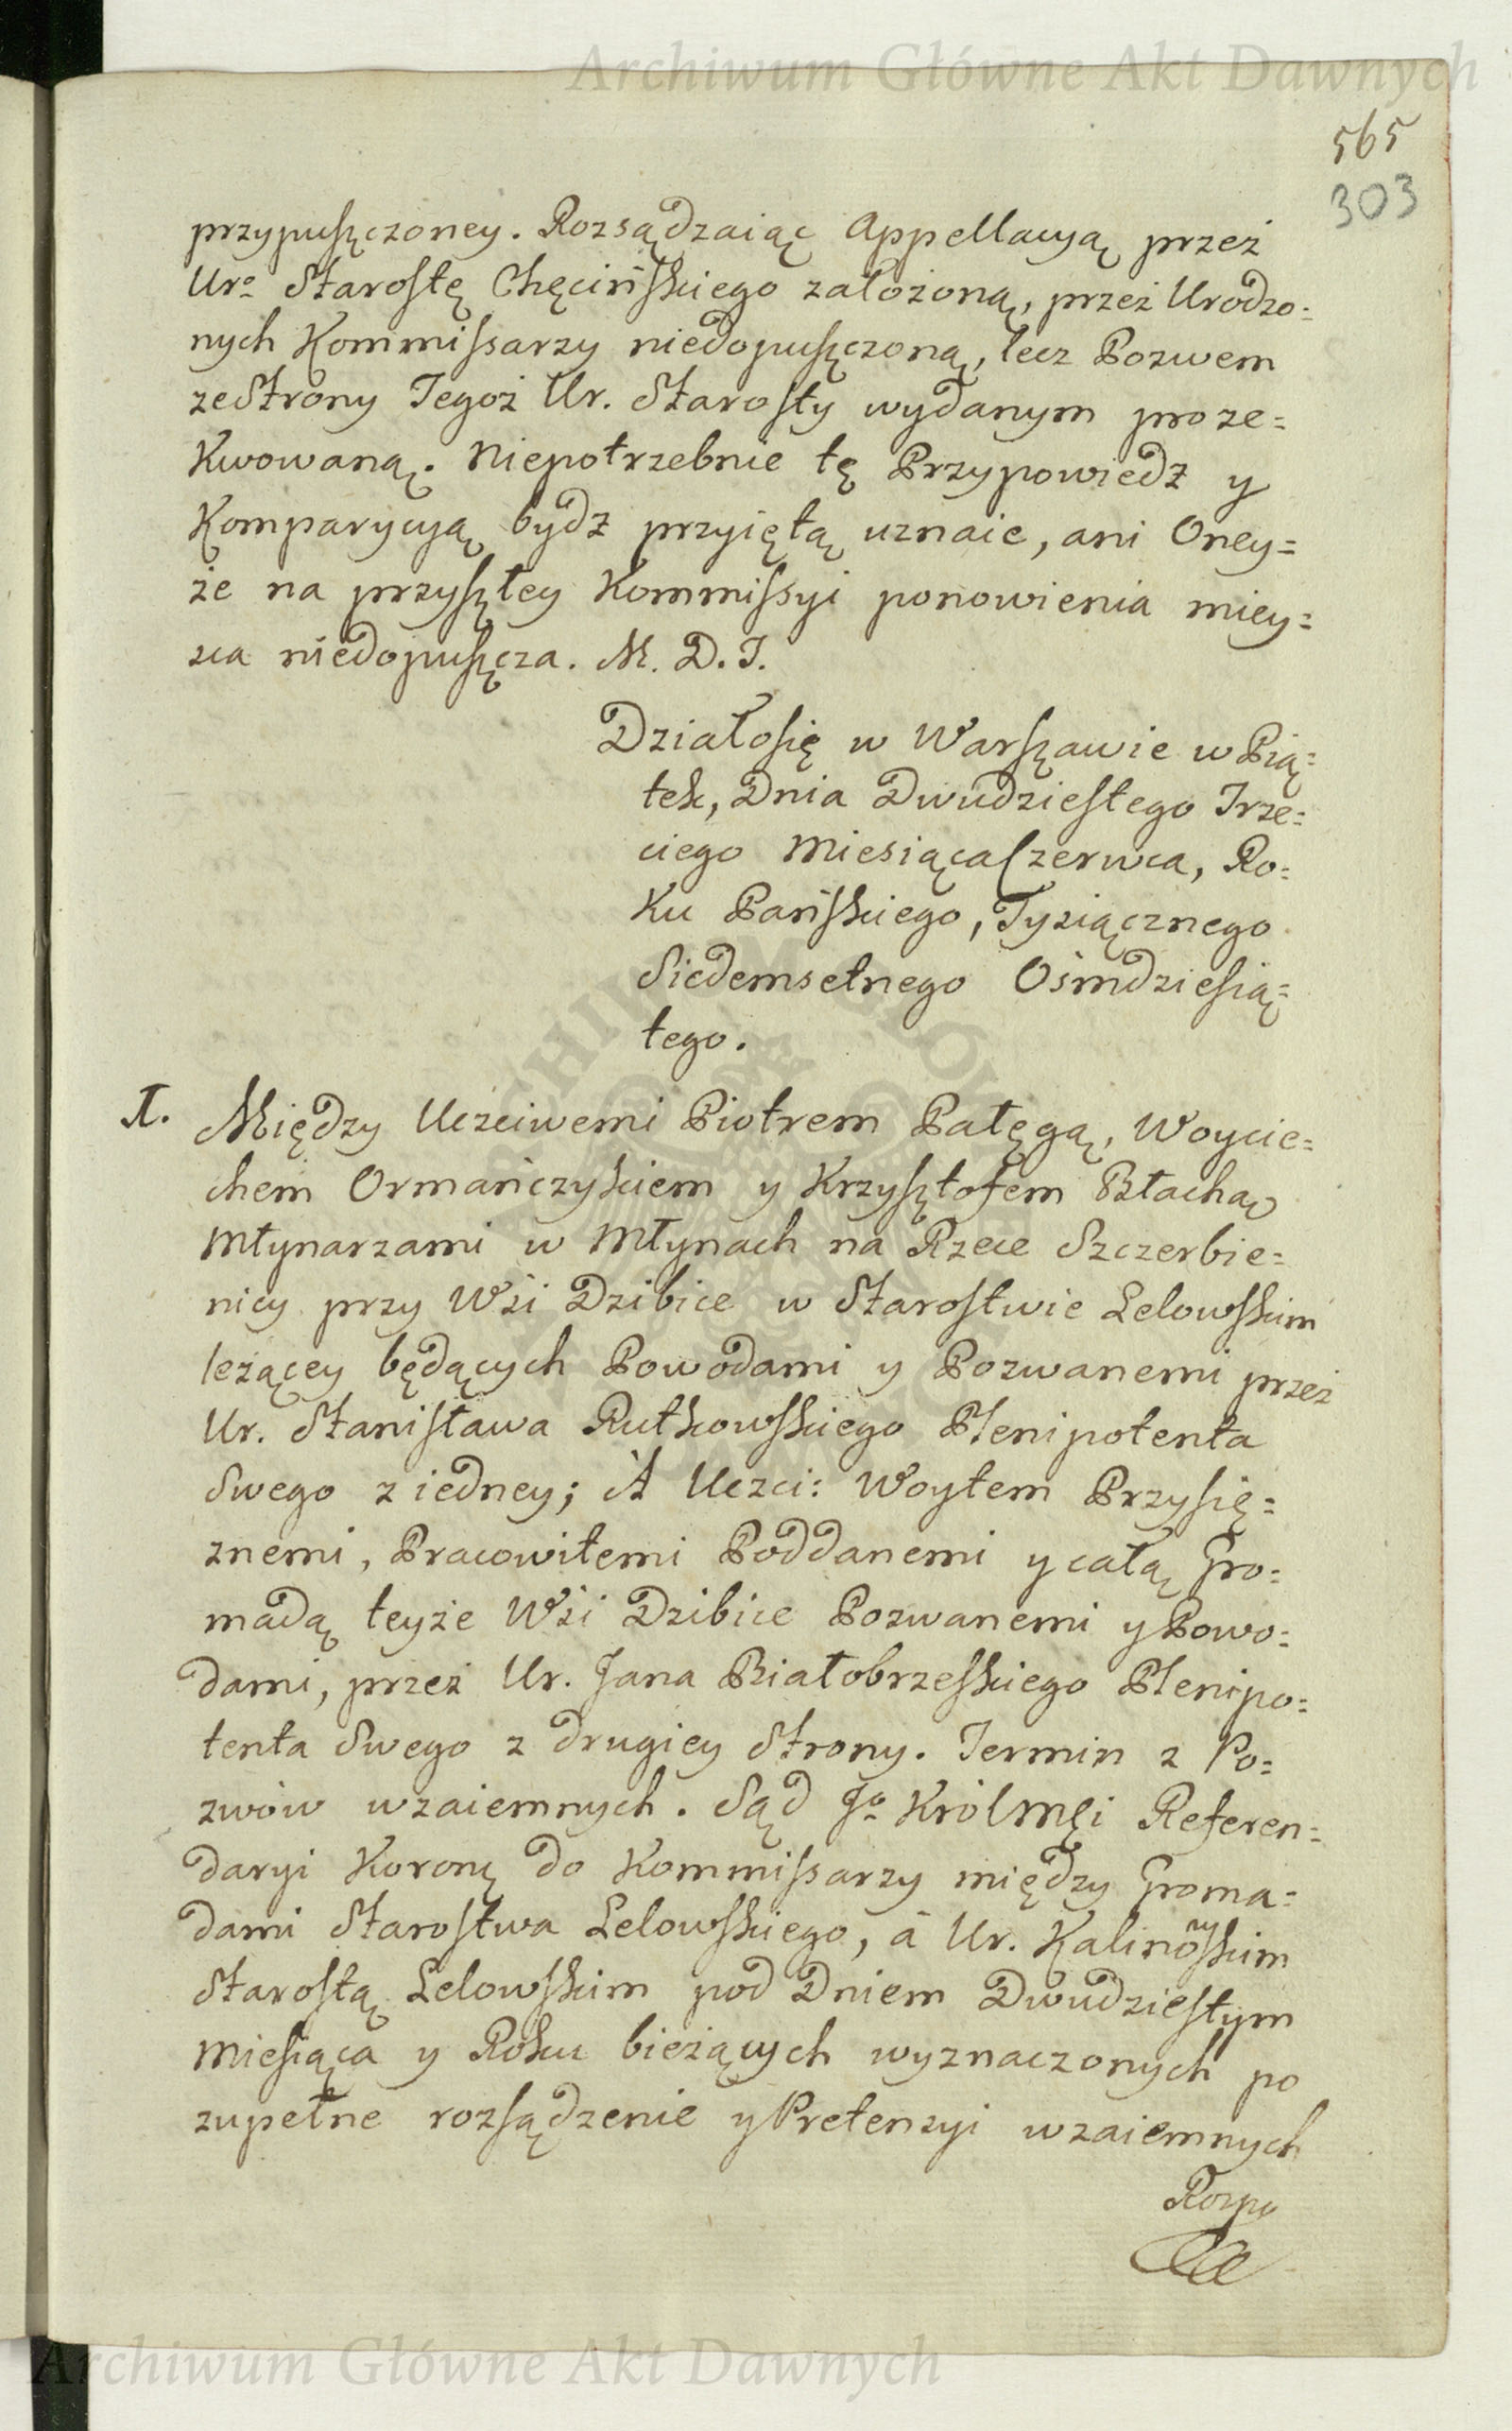 Archiwum Główne Akt Dawnych
565
303
przypuszczoney. Rozsądzaiąc Appellacyą przez
Uro Starostę Chęcińskiego założoną, przez Urodzo=
nych Kommissarzy niedopuszczoną, lecz Pozwem
ze Strony Tegoż Ur. Starosty wydanym proze=
kwowaną. Niepotrzebnie tę Przypowiedź y
Komparycyą bydź przyiętą uznaie, ani Oney=
że na przyszłey Kommissyi ponowienia miey=
sca niedopuszcza. M. D. J.
Działosię w Warszawie w Pią=
tek, Dnia Dwudziestego Trze=
ciego Miesiąca Czerwca, Ro=
ku Pańskiego, Tysiącznego
Siedemsetnego Ośmdziesią=
tego.
I. Między Uczciwemi Piotrem Pałęgą, Woycie=
chem Ormańczykiem y Krzysztofem Błachą
Młynarzami w Młynach na Rzece Szczerbie=
nicy przy Wsi Dzibice w Starostwie Lelowskim
leżącey będących Powodami y Pozwanemi przez
Ur. Stanisława Rutkowskiego Plenipotenta
Swego z iedney; A Uczci: Woytem Przysię=
znemi, Pracowitemi Poddanemi y całą Gro=
madą teyże Wsi Dzibice Pozwanemi y Powo=
dami, przez Ur. Jana Białobrzeskiego Plenipo=
tenta Swego z drugiey Strony. Termin z Po=
zwów wzaiemnych. Sąd Jo KrólMći Referen=
daryi Koronę do Kommissarzy między Groma=
dami Starostwa Lelowskiego, á Ur. Kalinowskim
Starostą Lelowskim pod Dniem Dwudziestym
Miesiąca y Roku bieżących wyznaczonych po
zupełne rozsądzenie y Pretensyi wzaiemnych
Rozpo
Archiwum Główne Akt Dawnych